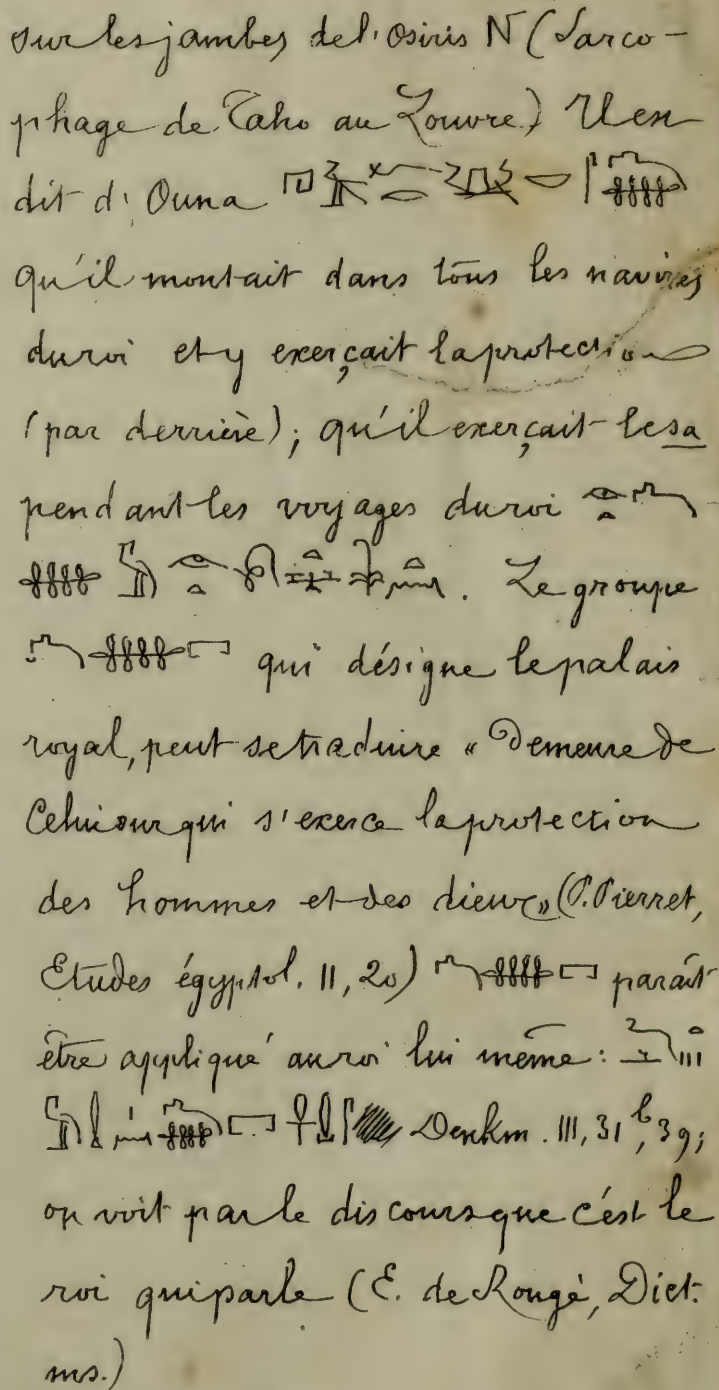 sur les jambes de l'Osiris N (Sarco-
phage de Taho au Louvre) Il est
dit d'Ouna
qu'il montait dans tous les navires
du roi et y exerçait la protection
(par derrière); qu'il exerçait le sa
pendant les voyages du roi
. Le groupe
qui désigne le palais
royal, peut se traduire « Demeure de
Celui sur qui s'exerce la protection
des hommes et des dieux» (P. Pierret,
Etudes égyptol. II, 20) paraît
être appliqué au roi lui même:
Denkm. III, 31 b, 39;
on voit par le discours que c'est le
roi qui parle (E. de Rougé, Dict.
ms.)